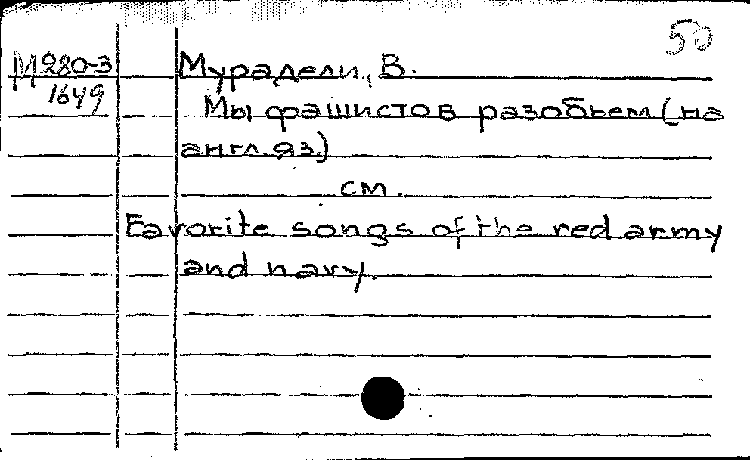 50
М280-3 Мурадели, В.
1649 Мы фашистов разобьем (на
англ.яз.)
см.
Favorite songs of the red army
and navy.